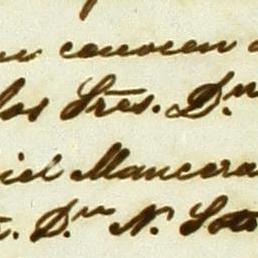 conocen
los Sres. Dn
iel Mancera
Dn N. Soto